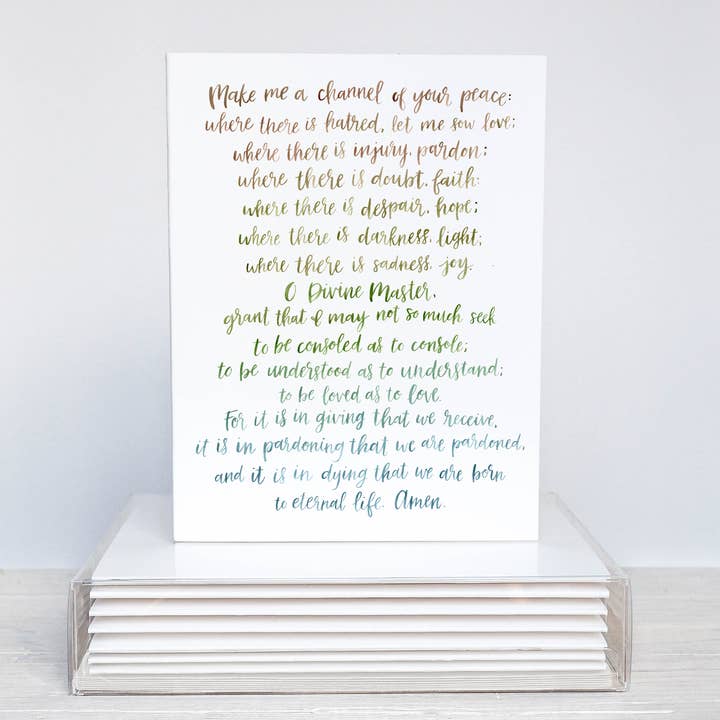 Make me a channel of your peace:
where there is hatred, let me sow love;
where there is injury, pardon;
where there is doubt, faith:
where there is despair, hope;
where there is darkness, light;
where there is sadness, joy.
O Divine Master,
grant that I may not so much seek
to be consoled as to console;
to be understood as to understand;
to be loved as to love.
For it is in giving that we receive,
it is in pardoning that we are pardoned,
and it is in dying that we are born
to eternal life. Amen.